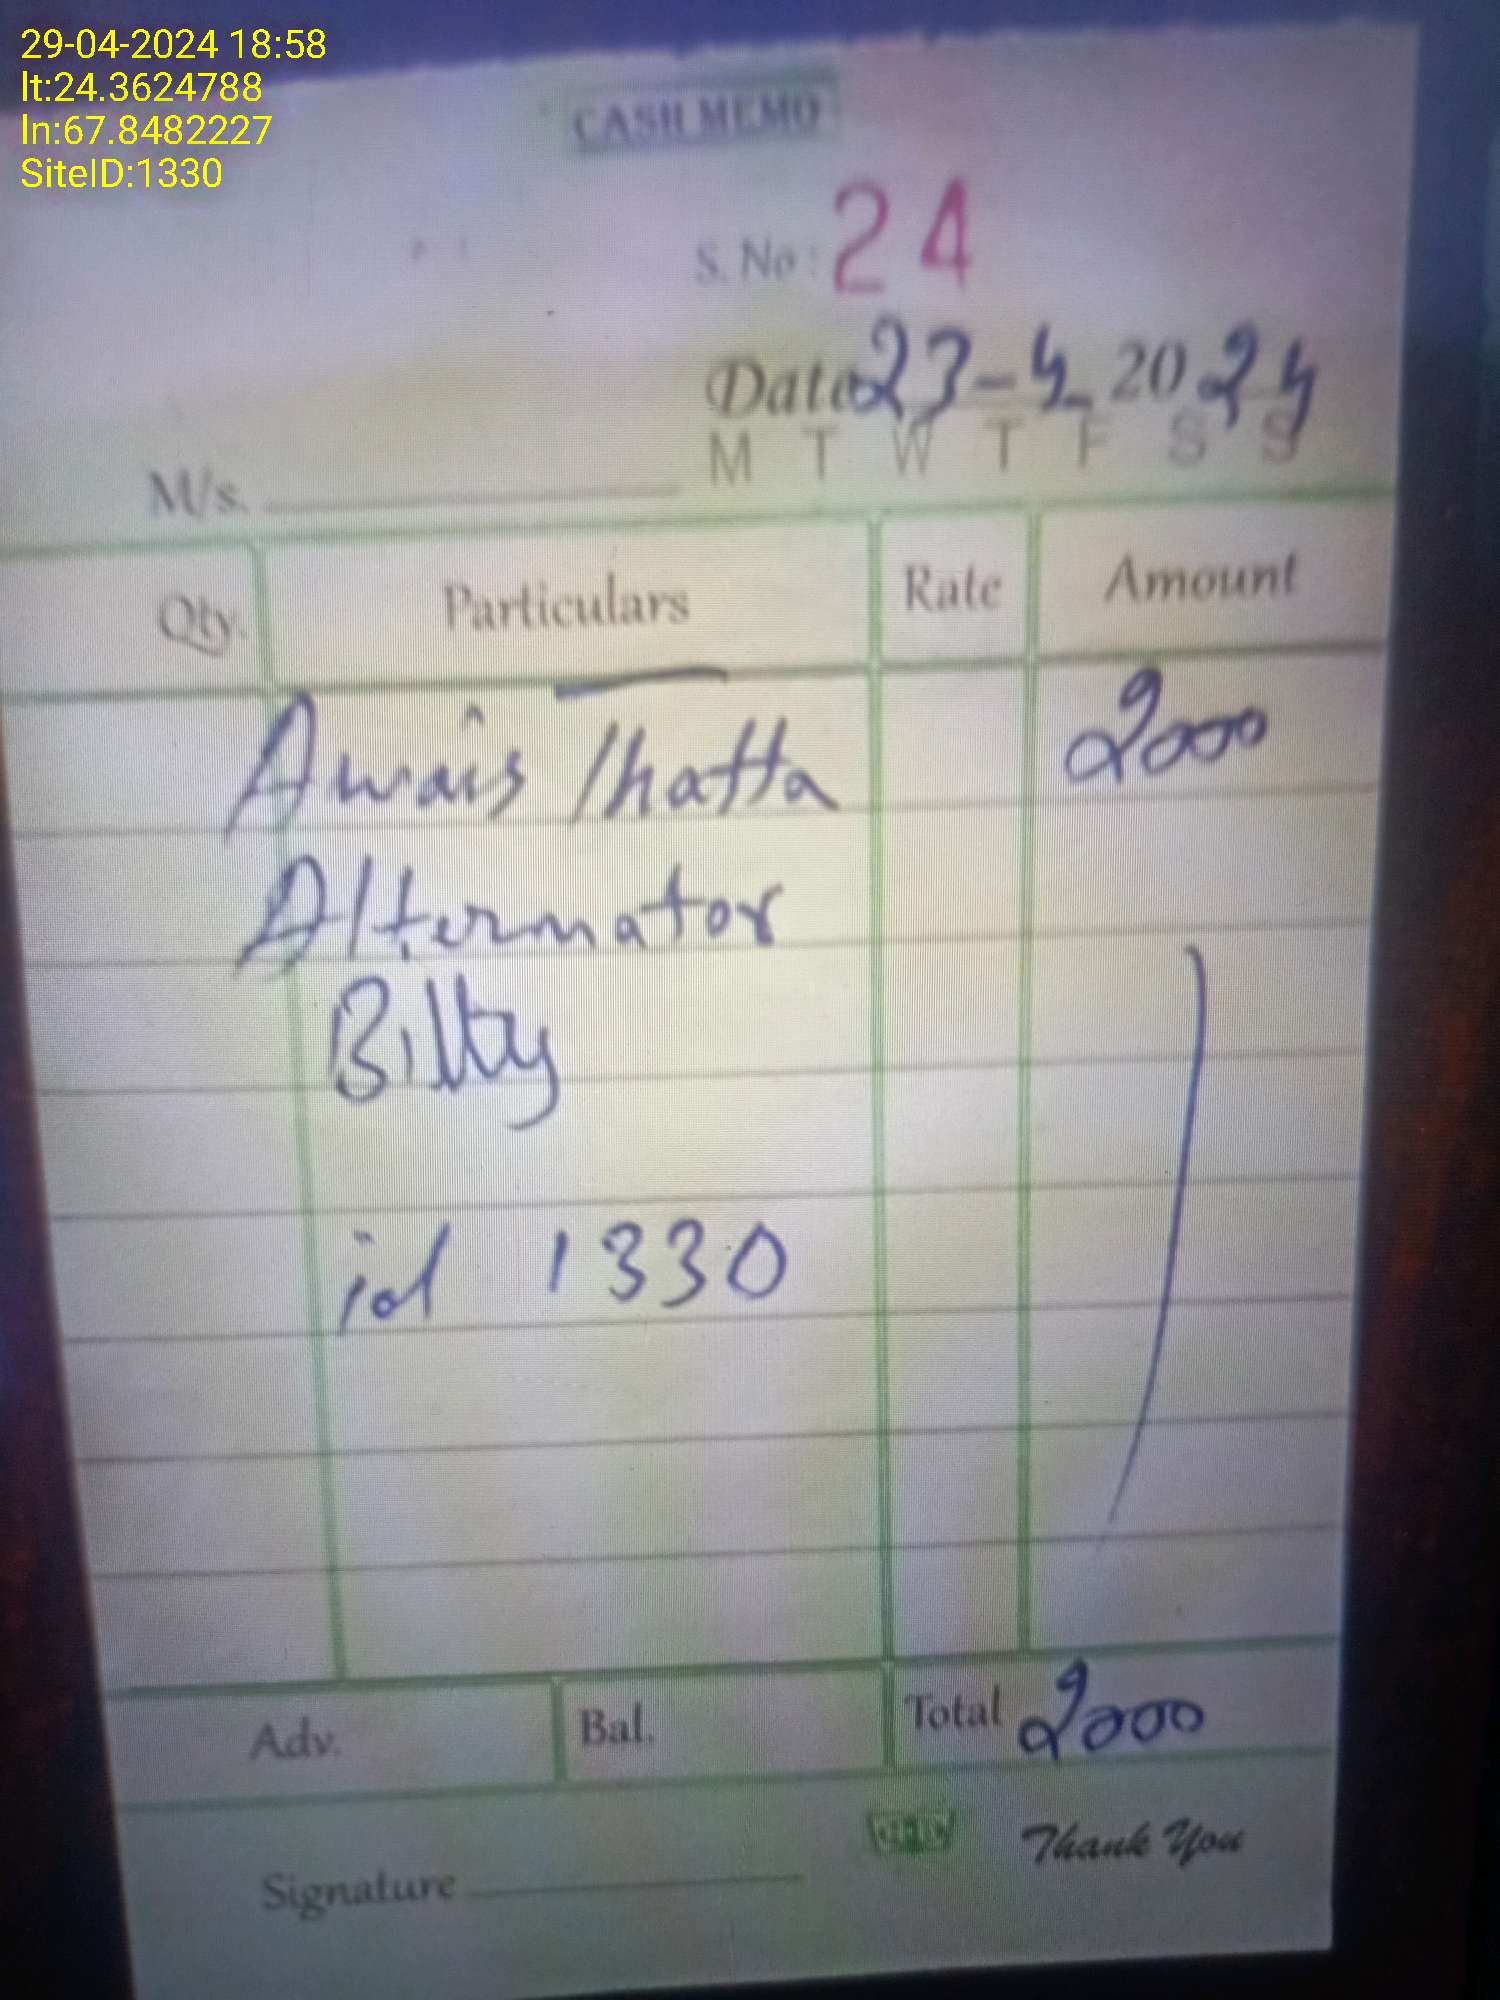 29-04-2024 18:58
lt:24.3624788
ln:67.8482227
SiteID:1330
CASH MEMO
S. No : 24
Date 23-4-2024
M T W T F S S
M/s.
Qty. Particulars Rate Amount
Awais Thatta 2000
Alternator
Bilty
id 1330
Adv. Bal. Total 2000
Thank You
Signature